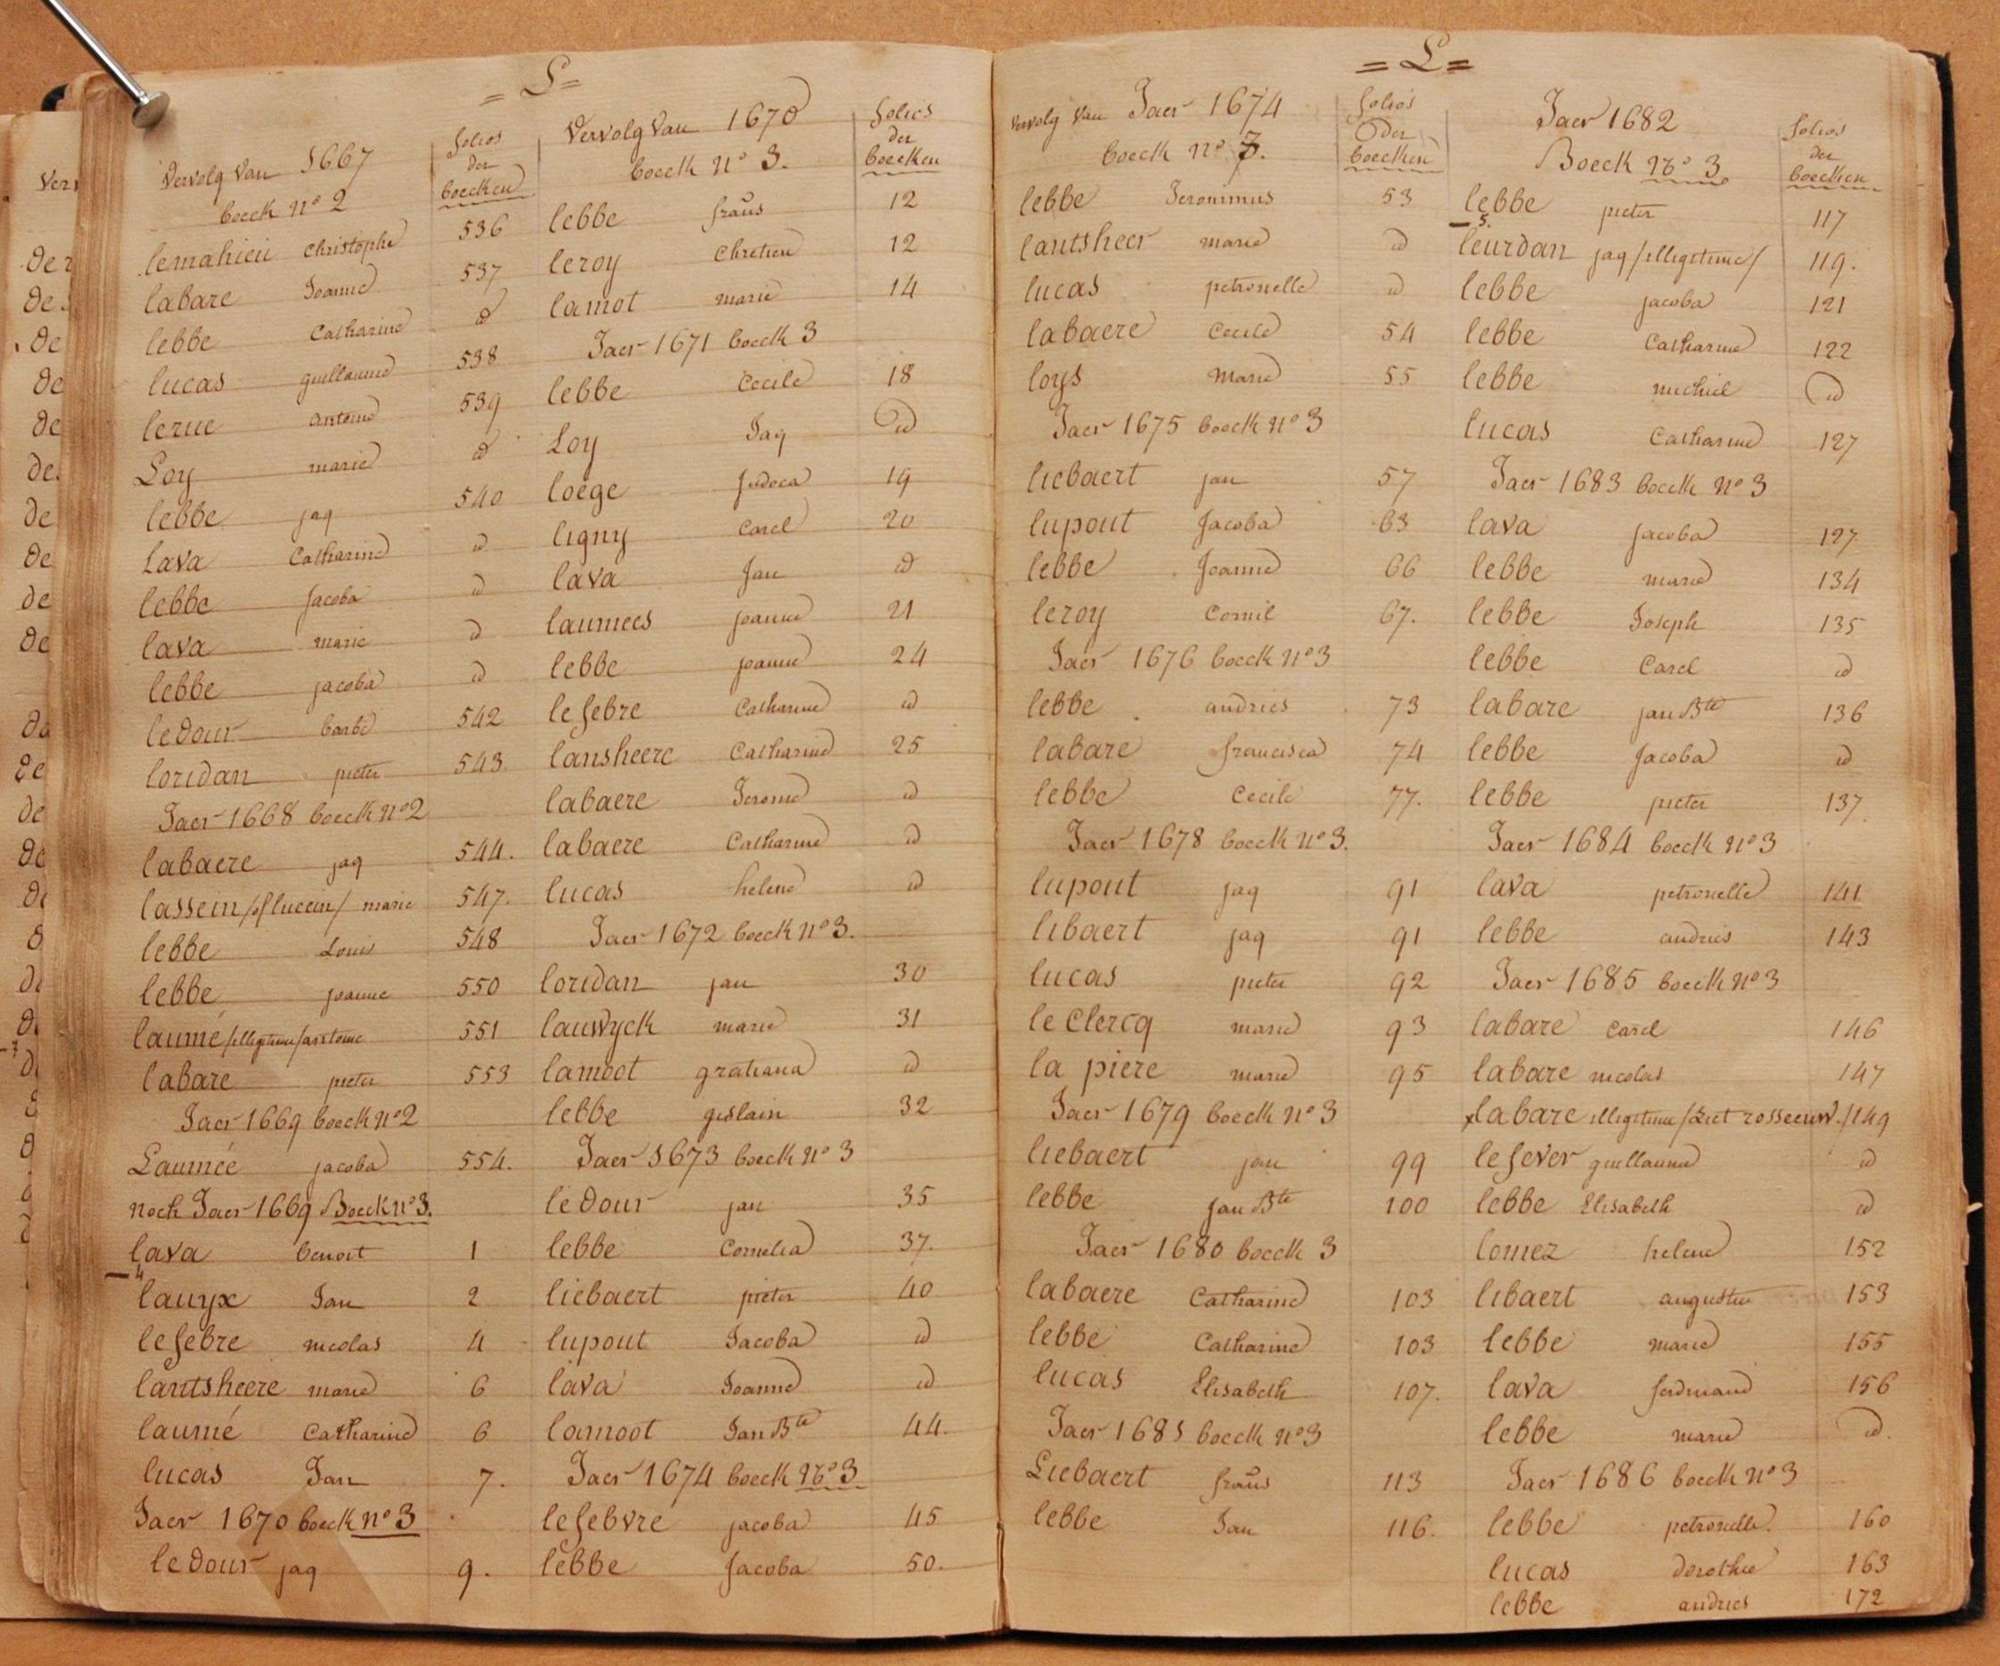 = L =
Vervolg Van 1667
boeck n° 2
folios
der
boecken
lemahieu Christophe 536
labare Joanne 537
lebbe Catharine id
lucas guillaume 538
lerue antoine 539
Loy marie id
lebbe jaq 540
Lava Catharine id
lebbe Jacoba id
lava marie id
lebbe jacoba id
ledour barbe 542
loridan pieter 543
Jaer 1668 boeck n°2
labaere jaq 544.
lassein/of lucein/ marie 547.
lebbe Louis 548
lebbe joanne 550
laumé/illegitime/antoine 551
labare pieter 553
Jaer 1669 boeck n°2
Laumée jacoba 554.
noch Jaer 1669 Boeck n°3.
lava benoit 1
4
lauyx Jan 2
lefebre nicolas 4
lantsheere marie 6
laumé Catharine 6
lucas Jan 7.
Jaer 1670 boeck n°3
ledour jaq 9.
Vervolg Van 1670
boeck n° 3.
folios
der
boecken
lebbe fraūs 12
leroy Chretien 12
lamot marie 14
Jaer 1671 boeck 3
lebbe Cecile 18
Loy Jaq id
loege Judoca 19
ligny Carel 20
lava Jan id
laumees joanne 21
lebbe joanne 24
lefebre Catharine id
lansheere Catharine 25
labaere Jerome id
labaere Catharine id
lucas helene id
Jaer 1672 boeck n°3.
loridan jan 30
lauwyck marie 31
lamoot gratiana id
lebbe gislain 32
Jaer 1673 boeck n° 3
ledour jan 35
lebbe Cornelia 37.
liebaert pieter 40
lupout Jacoba id
lava Joanne id
lamoot Jan Bte 44.
Jaer 1674 boeck N° 3
lefebvre jacoba 45
lebbe Jacoba 50.
= L =
vervolg Van Jaer 1674
boeck n° 3.
folios
der
boecken
lebbe Jeronimus 53
lantsheer marie id
lucas petronelle id
labaere Cecile 54
loys Marie 55
Jaer 1675 boeck n° 3
liebaert jan 57
lupout Jacoba 63
lebbe Joanne 66
leroy Cornil 67.
Jaer 1676 boeck n°3
lebbe andries 73
labare francisca 74
lebbe Cecile 77.
Jaer 1678 boeck n°3.
lupout jaq 91
libaert jaq 91
lucas pieter 92
le Clercq marie 93
la piere marie 95
Jaer 1679 boeck n°3
liebaert jan 99
lebbe jan Bte 100
Jaer 1680 boeck 3
labaere Catharine 103
lebbe Catharine 103
lucas Elisabeth 107.
Jaer 1681 boeck n°3
Liebaert fraūs 113
lebbe Jan 116.
Jaer 1682
Boeck N° 3
folios
der
boecken
lebbe pieter 117
5.
leurdan jaq/illegitime/ 119.
lebbe jacoba 121
lebbe Catharine 122
lebbe michiel id
lucas Catharine 127
Jaer 1683 boeck n°3
lava jacoba 127
lebbe marie 134
lebbe Joseph 135
lebbe Carel id
labare jan Bte 136
lebbe Jacoba id
lebbe pieter 137
Jaer 1684 boeck n°3
lava petronelle 141
lebbe andries 143
Jaer 1685 boeck n°3
labare Carel 146
labare nicolas 147
x labare illegitime/Ziet rosseeuw./149
lefever guillaume id
lebbe Elisabeth id
lomez helene 152
libaert augustin 153
lebbe marie 155
lava ferdinand 156
lebbe marie id.
Jaer 1686 boeck n°3
lebbe petronelle. 160
lucas dorothie 163
lebbe andries 172